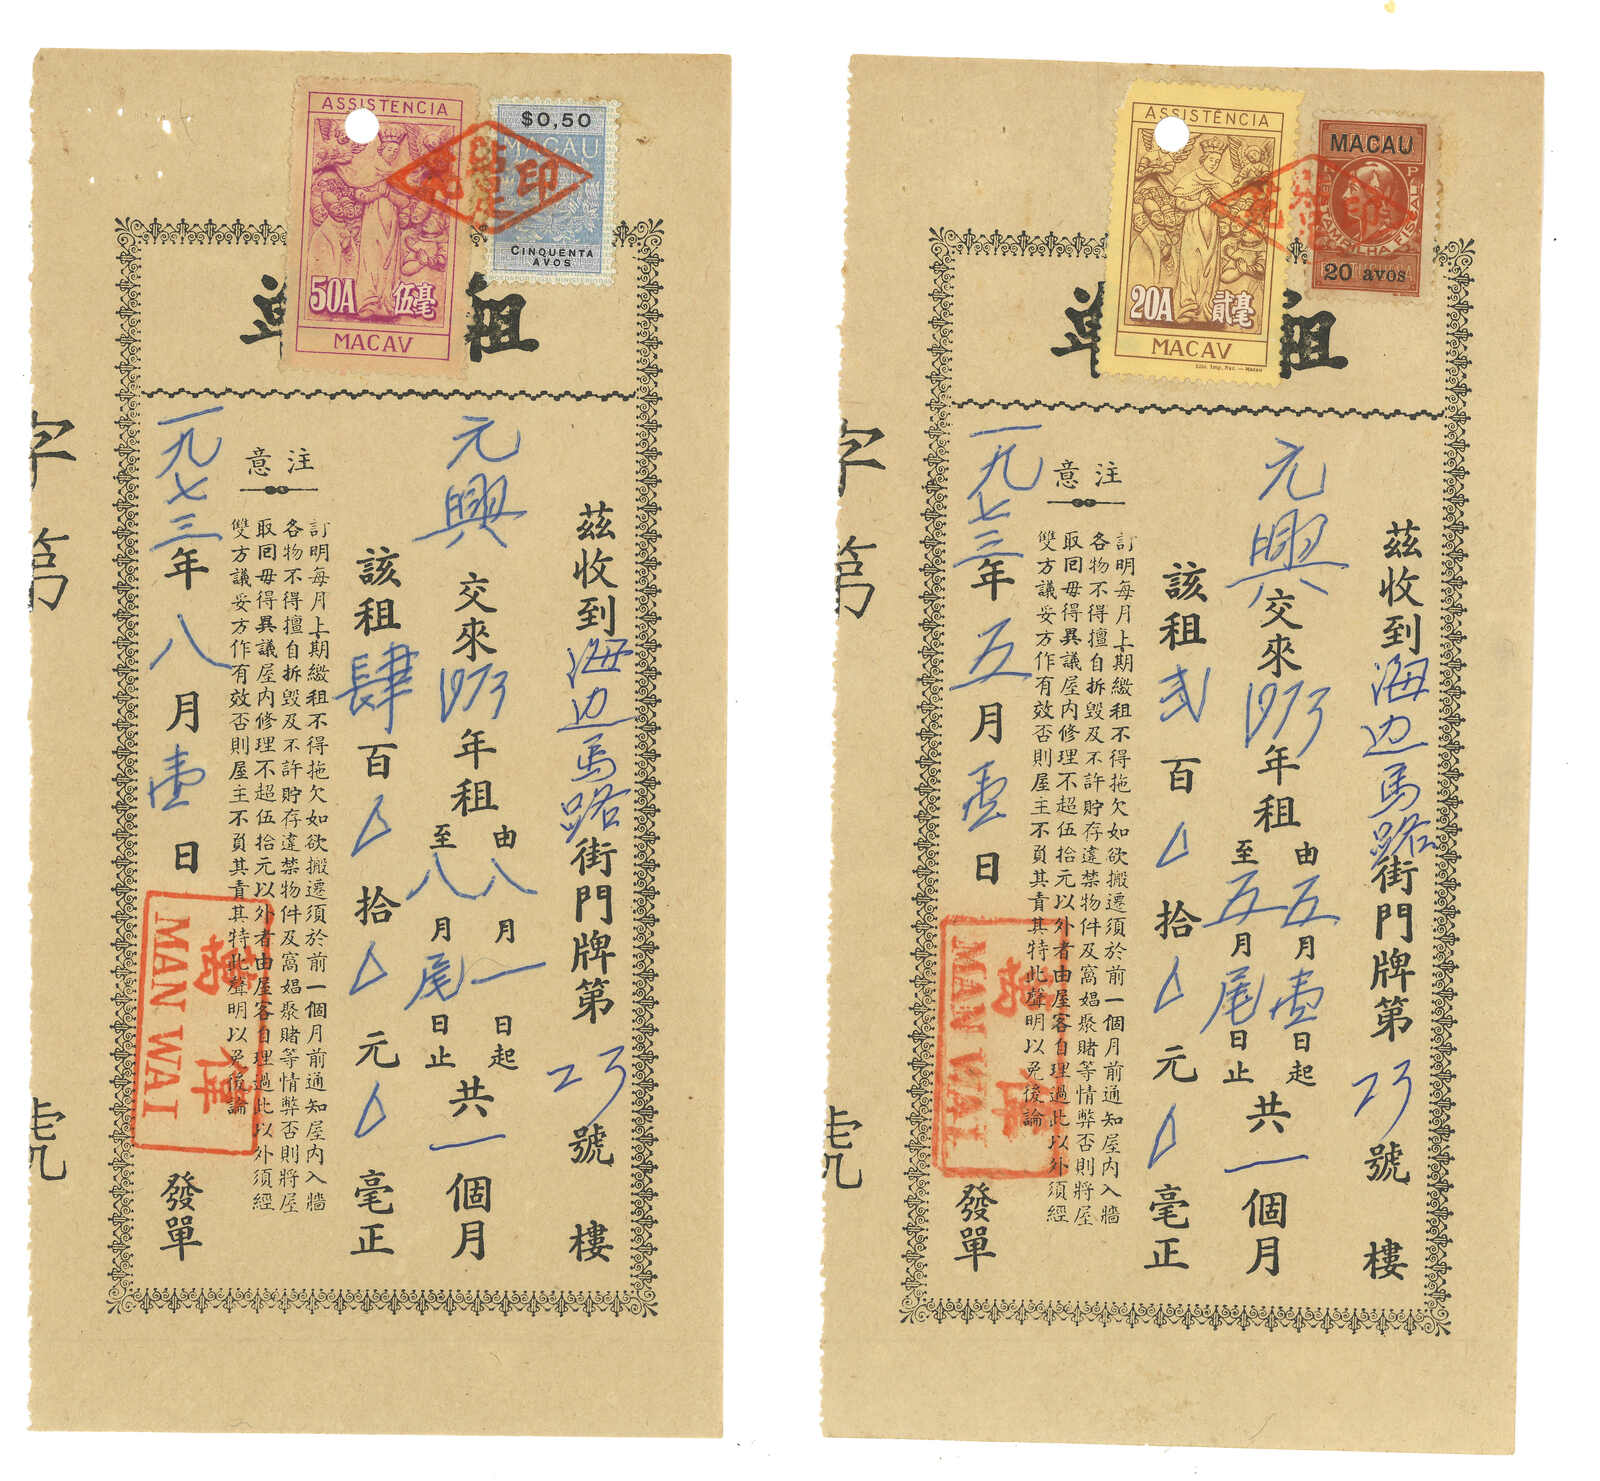 ASSISTENCIA
50A 伍毫
MACAV
$0,50
MACAU
CINQUENTA
AVOS
印
租單
茲收到海边馬路街門牌第23號 樓
元興交來1973年租由八月一日起至八月尾日止共一個月
該租肆百△拾△元△毫正
注意
訂明每月上期繳租不得拖欠如欲搬遷須於前一個月前通知屋內入牆
各物不得擅自拆毀及不許貯存違禁物件及窩娼聚賭等情弊否則將屋
取回毋得異議屋內修理不超伍拾元以外者由屋客自理過此以外須經
雙方議妥方作有效否則屋主不負其責其特此聲明以免後論
一九七三年八月壹日 發單
MAN WAI
偉
字第 號
ASSISTÊNCIA
20A 貳毫
MACAV
MACAU
ESTAMPILHA FISCAL
20 avos
租單
茲收到海边馬路街門牌第23號 樓
元興交來1973年租由五月壹日起至五月尾日止共一個月
該租貳百△拾△元△毫正
注意
訂明每月上期繳租不得拖欠如欲搬遷須於前一個月前通知屋內入牆
各物不得擅自拆毀及不許貯存違禁物件及窩娼聚賭等情弊否則將屋
取回毋得異議屋內修理不超伍拾元以外者由屋客自理過此以外須經
雙方議妥方作有效否則屋主不負其責其特此聲明以免後論
一九七三年五月壹日 發單
MAN WAI
偉
字第 號